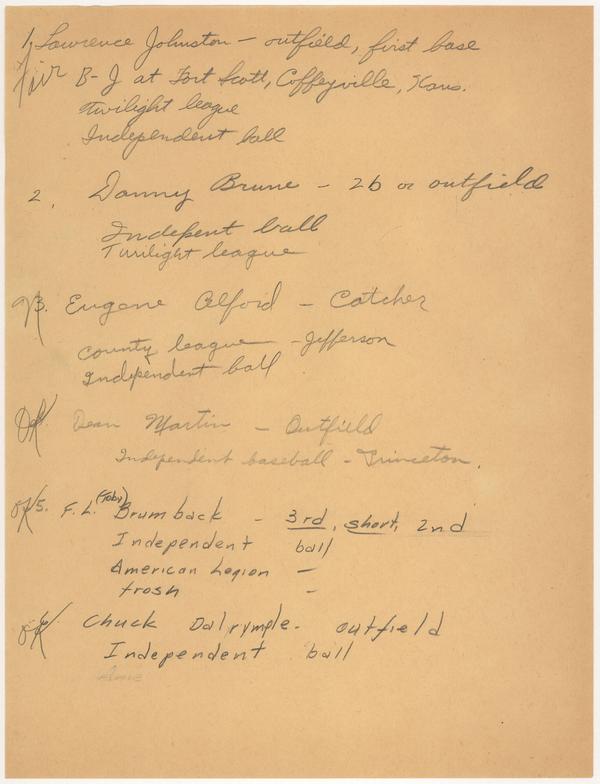 1, Lawrence Johnston - outfield, first base
Fair B-J at Fort Scott, Coffeyville, Kans.
Twilight league
Independent ball
2. Danny Brune - 2b or outfield
Indepent ball
Twilight league
3. Eugene Alford - Catcher
County league - Jefferson
Independent ball
OK Dean Martin - Outfield
Independent baseball - Princeton.
OK 5. F. L. (Toby) Brumback - 3rd, short, 2nd
Independent ball
American Legion -
frosh -
OK Chuck Dalrymple - outfield
Independent ball